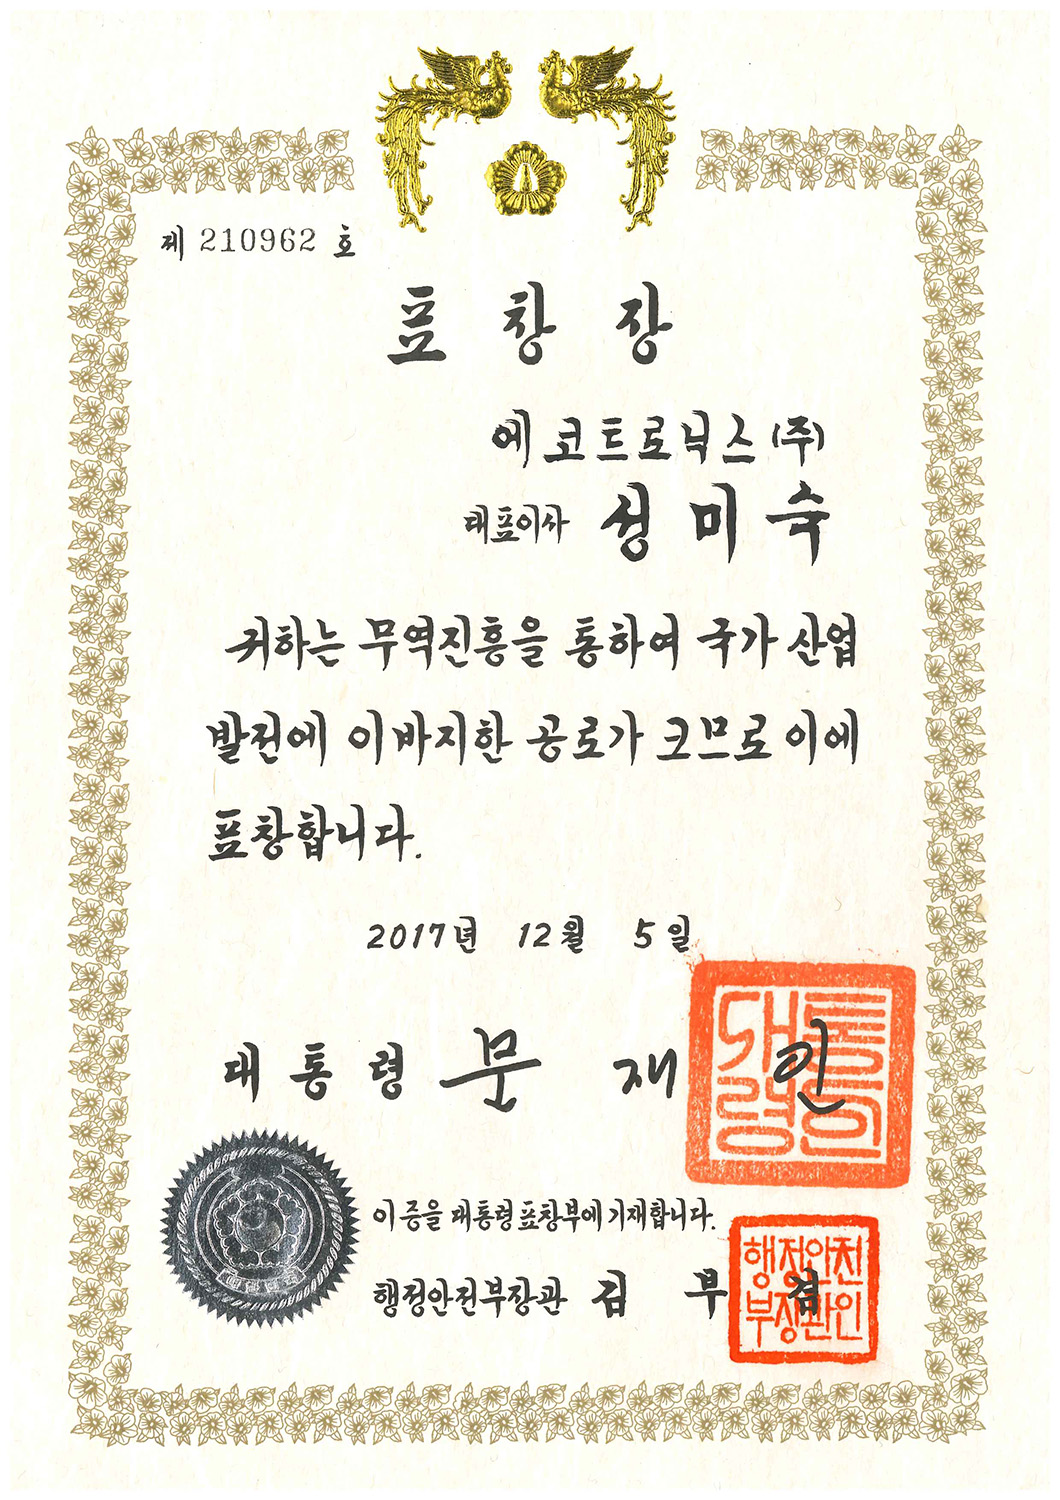 제 210962 호
표 창 장
에코트로닉스(주)
대표이사 성 미 숙
귀하는 무역진흥을 통하여 국가 산업
발전에 이바지한 공로가 크므로 이에
표창합니다.
2017년 12월 5일
대 통 령 문 재 인
대통령인
이 증을 대통령 표창부에 기재합니다.
행정안전부장관 김 부 겸
행정안전
부장관인